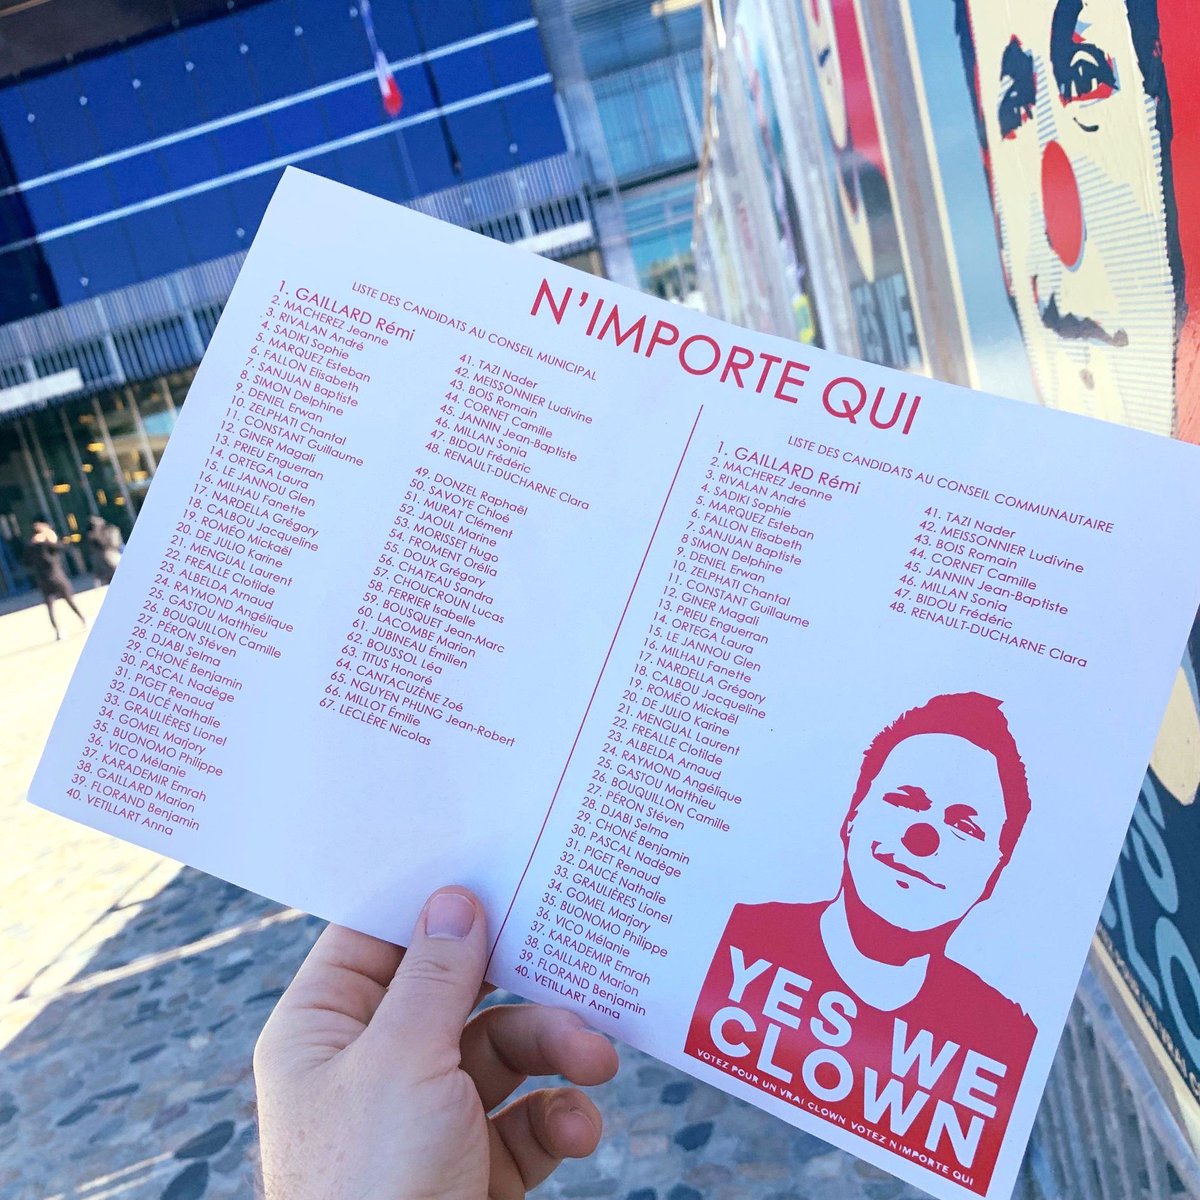 N'IMPORTE QUI
LISTE DES CANDIDATS AU CONSEIL MUNICIPAL
1. GAILLARD Rémi
2. MACHEREZ Jeanne
3. RIVALAN André
4. SADIKI Sophie
5. MARQUEZ Esteban
6. FALLON Elisabeth
7. SANJUAN Baptiste
8. SIMON Delphine
9. DENIEL Erwan
10. ZELPHATI Chantal
11. CONSTANT Guillaume
12. GINER Magali
13. PRIEU Enguerran
14. ORTEGA Laura
15. LE JANNOU Glen
16. MILHAU Fanette
17. NARDELLA Grégory
18. CALBOU Jacqueline
19. ROMÉO Mickaël
20. DE JULIO Karine
21. MENGUAL Laurent
22. FREALLE Clotilde
23. ALBELDA Arnaud
24. RAYMOND Angélique
25. GASTOU Matthieu
26. BOUQUILLON Camille
27. PÉRON Stéven
28. DJABI Selma
29. CHONÉ Benjamin
30. PASCAL Nadège
31. PIGET Renaud
32. DAUCÉ Nathalie
33. GRAULIÈRES Lionel
34. GOMEL Marjory
35. BUONOMO Philippe
36. VICO Mélanie
37. KARADEMIR Emrah
38. GAILLARD Marion
39. FLORAND Benjamin
40. VETILLART Anna
41. TAZI Nader
42. MEISSONNIER Ludivine
43. BOIS Romain
44. CORNET Camille
45. JANNIN Jean-Baptiste
46. MILLAN Sonia
47. BIDOU Frédéric
48. RENAULT-DUCHARNE Clara
49. DONZEL Raphaël
50. SAVOYE Chloé
51. MURAT Clément
52. JAOUL Marine
53. MORISSET Hugo
54. FROMENT Orélia
55. DOUX Grégory
56. CHATEAU Sandra
57. CHOUCROUN Lucas
58. FERRIER Isabelle
59. BOUSQUET Jean-Marc
60. LACOMBE Marion
61. JUBINEAU Émilien
62. BOUSSOL Léa
63. TITUS Honoré
64. CANTACUZÈNE Zoé
65. NGUYEN PHUNG Jean-Robert
66. MILLOT Émilie
67. LECLÈRE Nicolas
LISTE DES CANDIDATS AU CONSEIL COMMUNAUTAIRE
1. GAILLARD Rémi
2. MACHEREZ Jeanne
3. RIVALAN André
4. SADIKI Sophie
5. MARQUEZ Esteban
6. FALLON Elisabeth
7. SANJUAN Baptiste
8 SIMON Delphine
9. DENIEL Erwan
10. ZELPHATI Chantal
11. CONSTANT Guillaume
12. GINER Magali
13. PRIEU Enguerran
14. ORTEGA Laura
15. LE JANNOU Glen
16. MILHAU Fanette
17. NARDELLA Grégory
18. CALBOU Jacqueline
19. ROMÉO Mickaël
20. DE JULIO Karine
21. MENGUAL Laurent
22. FREALLE Clotilde
23. ALBELDA Arnaud
24. RAYMOND Angélique
25. GASTOU Matthieu
26. BOUQUILLON Camille
27. PÉRON Stéven
28. DJABI Selma
29. CHONÉ Benjamin
30. PASCAL Nadège
31. PIGET Renaud
32. DAUCÉ Nathalie
33. GRAULIÈRES Lionel
34. GOMEL Marjory
35. BUONOMO Philippe
36. VICO Mélanie
37. KARADEMIR Emrah
38. GAILLARD Marion
39. FLORAND Benjamin
40. VETILLART Anna
41. TAZI Nader
42. MEISSONNIER Ludivine
43. BOIS Romain
44. CORNET Camille
45. JANNIN Jean-Baptiste
46. MILLAN Sonia
47. BIDOU Frédéric
48. RENAULT-DUCHARNE Clara
YES WE
CLOWN
VOTEZ POUR UN VRAI CLOWN VOTEZ N'IMPORTE QUI